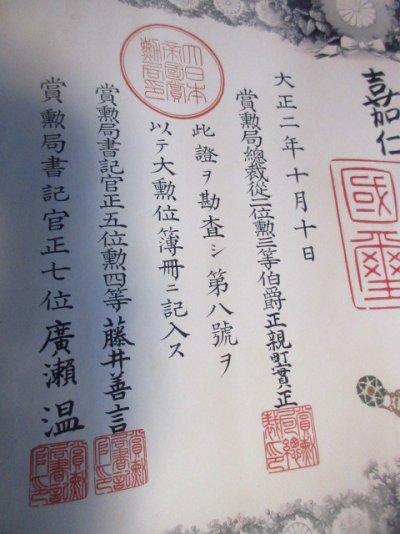 嘉仁
國璽
大正二年十月十日
賞勲局總裁從二位勲三等伯爵正親町實正
此證ヲ勘査シ第八號ヲ
以テ大勲位簿冊ニ記入ス
賞勲局書記官正五位勲四等藤井善言
賞勲局書記官正七位廣瀨溫